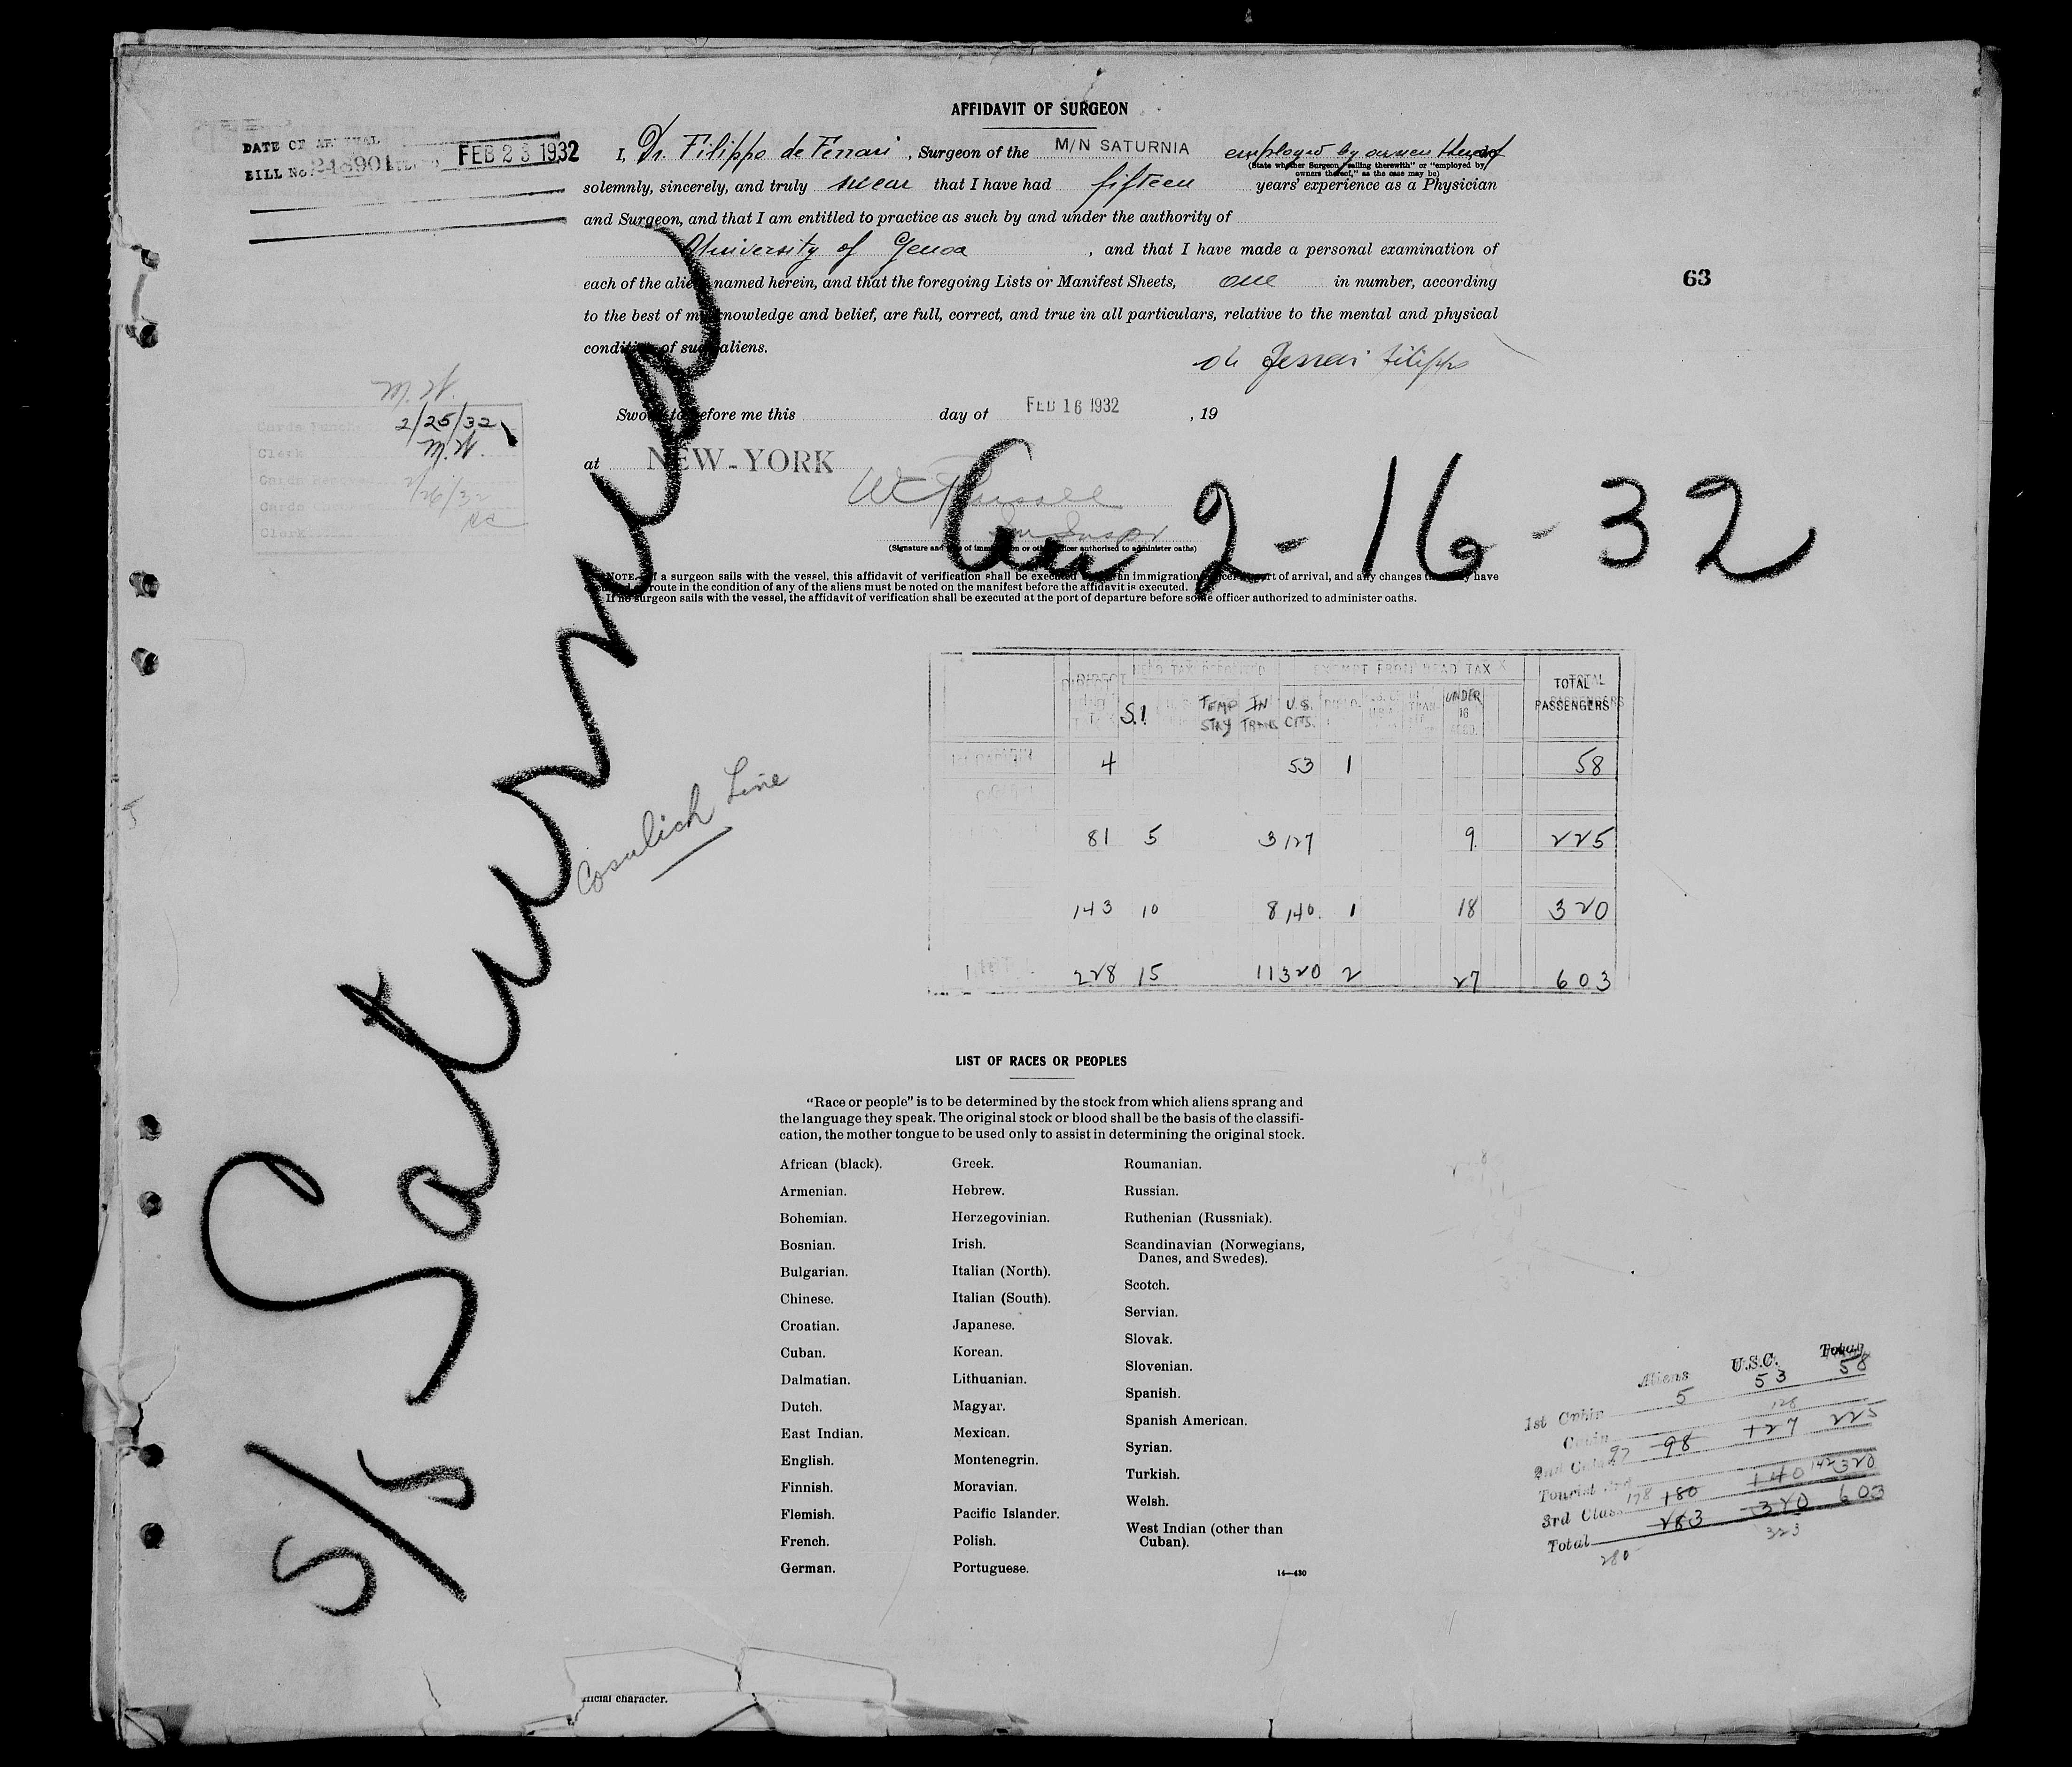 AFFIDAVIT OF SURGEON
DATE OF ARRIVAL
BILL No. 248901 FEB 23 1932
I, Dr. Filippo de Ferrari, Surgeon of the M/N SATURNIA employed by owners thereof
(State whether Surgeon "sailing therewith" or "employed by
owners thereof," as the case may be)
solemnly, sincerely, and truly swear that I have had fifteen years' experience as a Physician
and Surgeon, and that I am entitled to practice as such by and under the authority of
University of Genoa, and that I have made a personal examination of
each of the aliens named herein, and that the foregoing Lists or Manifest Sheets, one in number, according
to the best of my knowledge and belief, are full, correct, and true in all particulars, relative to the mental and physical
condition of such aliens.
63
de Ferrari Filippo
Sworn to before me this day of FEB 16 1932, 19
at NEW-YORK
(Signature and title of immigration or other officer authorized to administer oaths)
Arr 2-16-32
NOTE.—If a surgeon sails with the vessel, this affidavit of verification shall be executed before an immigration officer at port of arrival, and any changes that may have
occurred en route in the condition of any of the aliens must be noted on the manifest before the affidavit is executed.
If no surgeon sails with the vessel, the affidavit of verification shall be executed at the port of departure before some officer authorized to administer oaths.
M.N.
Cards Punched 2/25/32
Clerk M.N.
Cards Removed 2/26/32
Cards
Clerk
S/S Saturnia
Cosulich Line
DIRECT HEAD TAX EXEMPT FROM HEAD TAX TOTAL PASSENGERS
S.I. TEMP STAY IN TRANS U.S. CITS. DIPLO. UNDER 16 ACCD.
4 53 1 58
81 5 3 127 9 225
143 10 8 140 1 18 320
228 15 11 320 2 27 603
LIST OF RACES OR PEOPLES
"Race or people" is to be determined by the stock from which aliens sprang and
the language they speak. The original stock or blood shall be the basis of the classifi-
cation, the mother tongue to be used only to assist in determining the original stock.
African (black).
Armenian.
Bohemian.
Bosnian.
Bulgarian.
Chinese.
Croatian.
Cuban.
Dalmatian.
Dutch.
East Indian.
English.
Finnish.
Flemish.
French.
German.
Greek.
Hebrew.
Herzegovinian.
Irish.
Italian (North).
Italian (South).
Japanese.
Korean.
Lithuanian.
Magyar.
Mexican.
Montenegrin.
Moravian.
Pacific Islander.
Polish.
Portuguese.
Roumanian.
Russian.
Ruthenian (Russniak).
Scandinavian (Norwegians,
Danes, and Swedes).
Scotch.
Servian.
Slovak.
Slovenian.
Spanish.
Spanish American.
Syrian.
Turkish.
Welsh.
West Indian (other than
Cuban).
14—430
Aliens U.S.C. Total
1st Cabin 5 53 58
Cabin 128
2nd Cabin 97 98 127 225
Tourist 3rd 140 142 320
3rd Class 178 180
Total 283 320 603
280 323
official character.